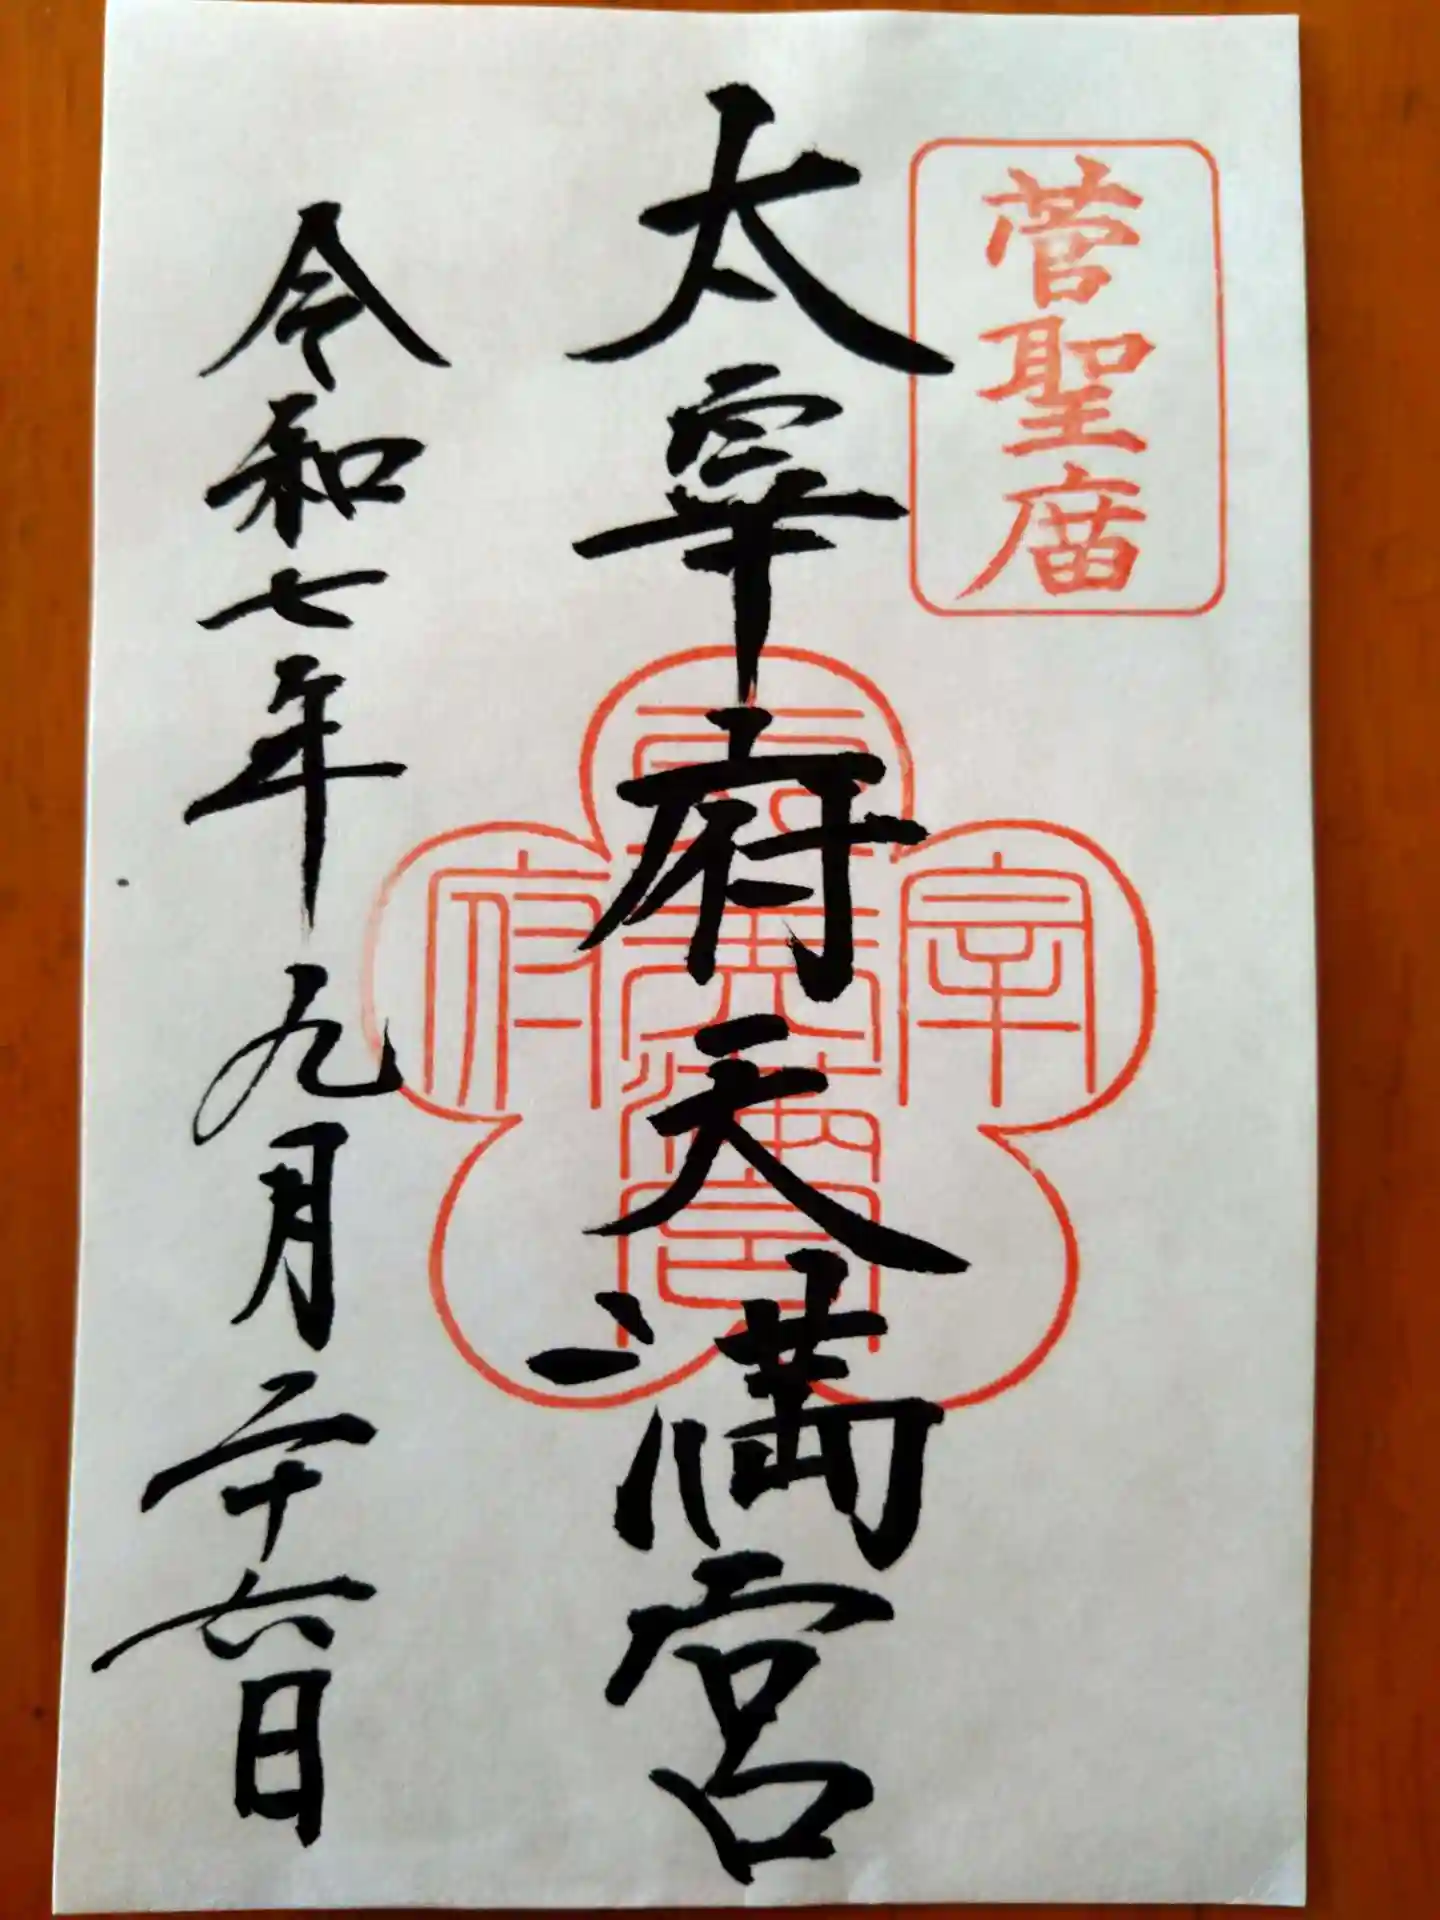 菅聖庿
太宰府天満宮
宰府
令和七年九月二十六日